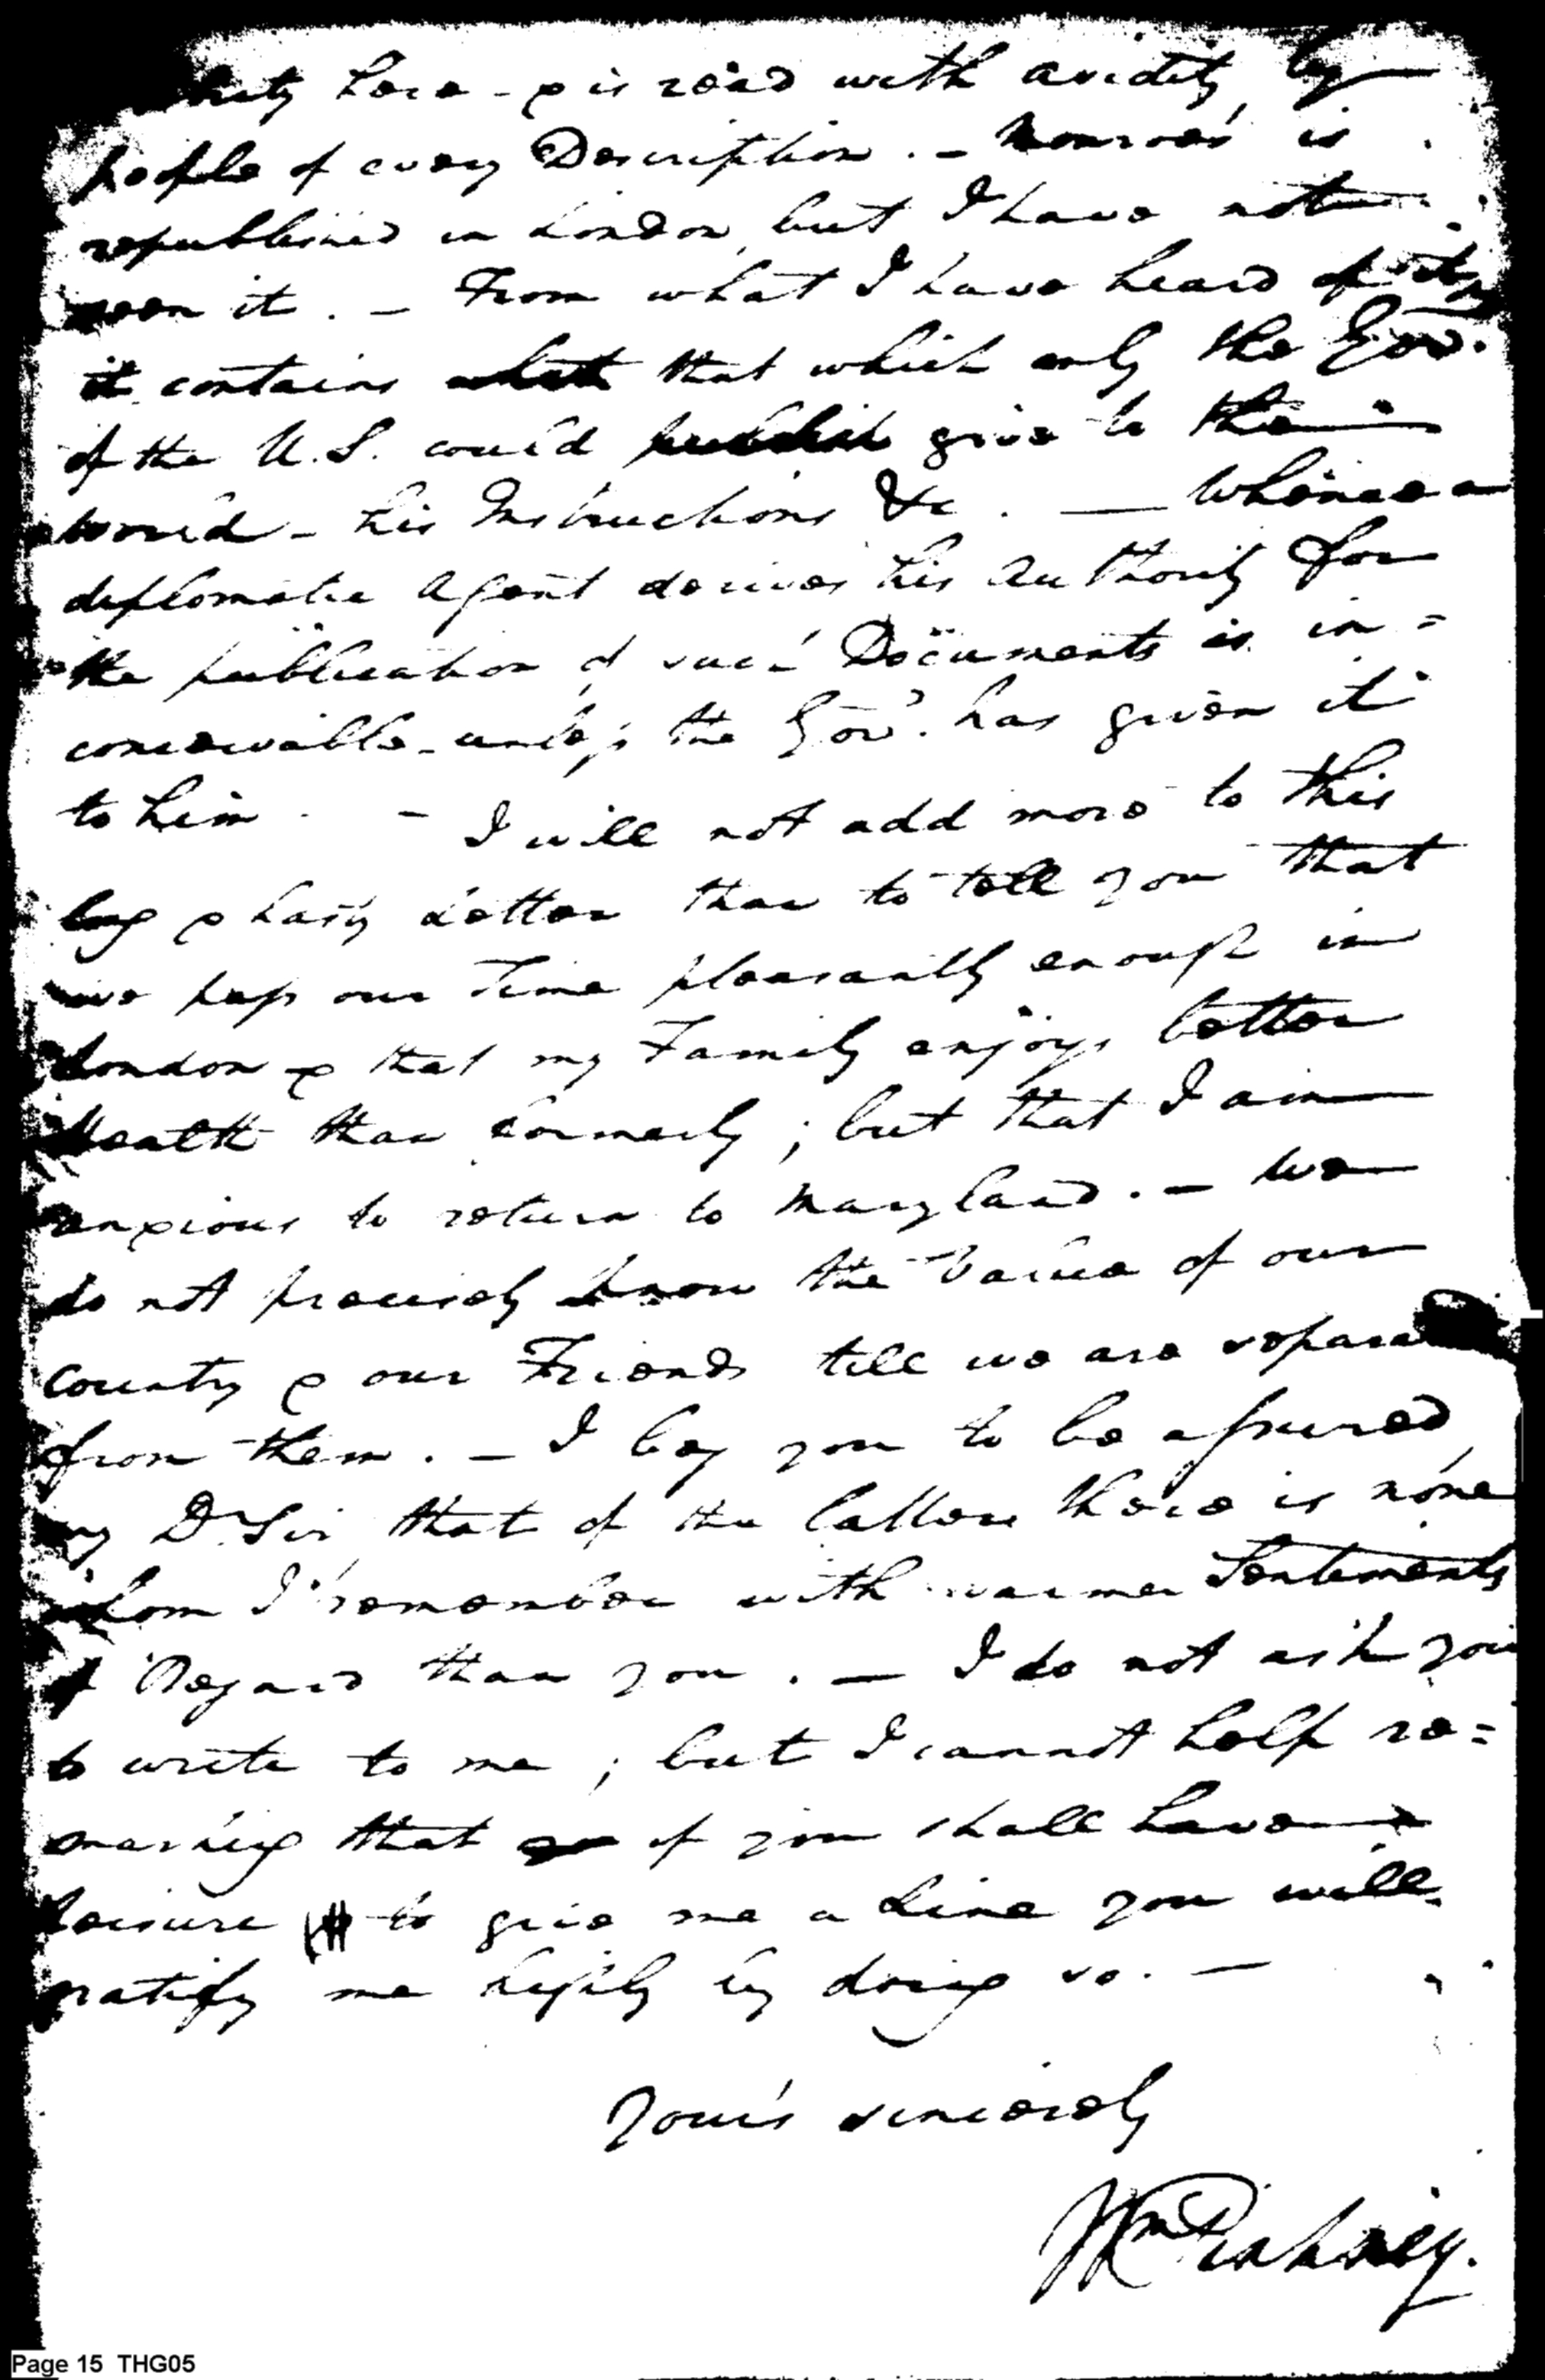 here - & is read with avidity by
people of every Description. - Monroe's is
republished in London, but I have not
seen it. - From what I have heard of it,
it contains that which only the Gov.
of the U.S. could publish give to the
world - his Instructions &c. — Whence a
diplomatic Agent derives his Authority for
the publication of such Documents is in=
conceivable unless the Gov.t has given it
to him - - I will not add more to this
long & hasty Letter than to tell you that
we pass our Time pleasantly enough in
London & that my Family enjoys better
Health than formerly; but that I am
anxious to return to Maryland. - We
do not precisely know the Value of our
Country & our Friends till we are separa
from them. - I beg you to be assured,
my Dr Sir that of the latter there is none
whom I remember with warmer Sentiments
of Regard than you. — I do not ask you
to write to me; but I cannot help re=
marking that if you shall have
Leisure to give me a Line you will
gratify me highly by doing so. —
Yours sincerely
Wm Pinkney.
Page 15 THG05